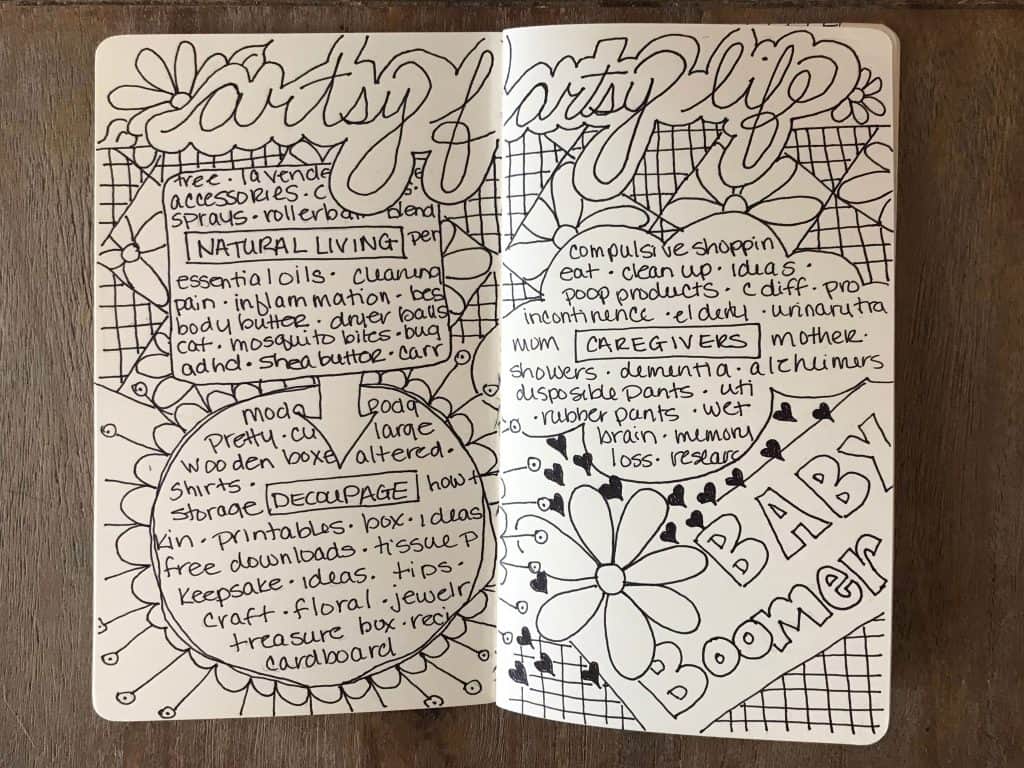 artsy f artsy life
tree · lavende
accessories · c s ·
sprays · rollerbal blend
NATURAL LIVING per
essential oils · cleaning
pain · inflammation · bes
body butter · dryer balls
cat · mosquito bites · bug
adhd · shea butter · carr
modg podg
pretty · cu large
wooden boxe altered ·
shirts ·
storage DECOUPAGE how t
kin · printables · box · ideas
free downloads · tissue p
keepsake · ideas · tips ·
craft · floral · jewelr
treasure box · reci
cardboard
compulsive shoppin
eat · clean up · ideas ·
poop products · c diff · pro
incontinence · elderly · urinary tra
mom CAREGIVERS mother ·
showers · dementia · alzheimers
disposible pants · uti
· rubber pants · wet
brain · memory
loss · researc
BABY
Boomer